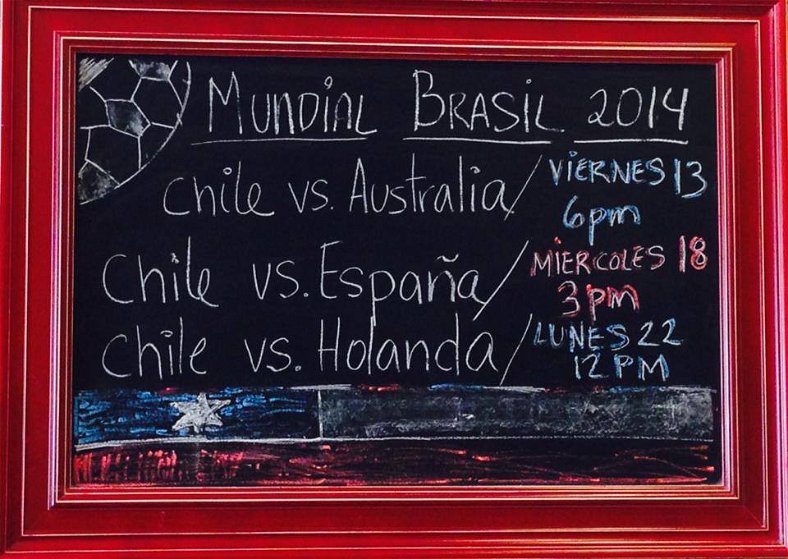 MUNDIAL BRASIL 2014
Chile vs. Australia/ VIERNES 13
6pm
Chile vs. España/ MIERCOLES 18
3pm
Chile vs. Holanda/ LUNES 22
12 PM